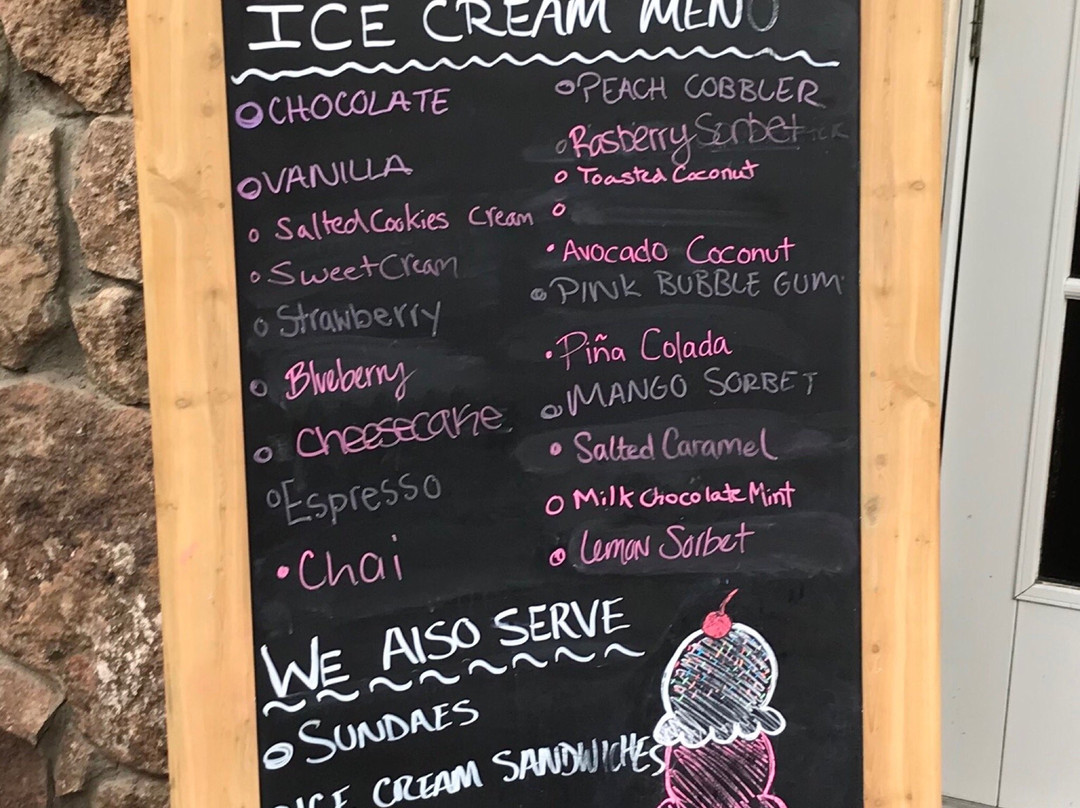 ICE CREAM MENU
CHOCOLATE
VANILLA
Salted Cookies Cream
Sweet Cream
Strawberry
Blueberry
Cheesecake
Espresso
Chai
PEACH COBBLER
Rasberry Sorbet
Toasted Coconut
Avocado Coconut
PINK BUBBLE GUM
Piña Colada
MANGO SORBET
Salted Caramel
Milk Chocolate Mint
Lemon Sorbet
WE AlSO SERVE
SUNDAES
ICE CREAM SANDWICHES